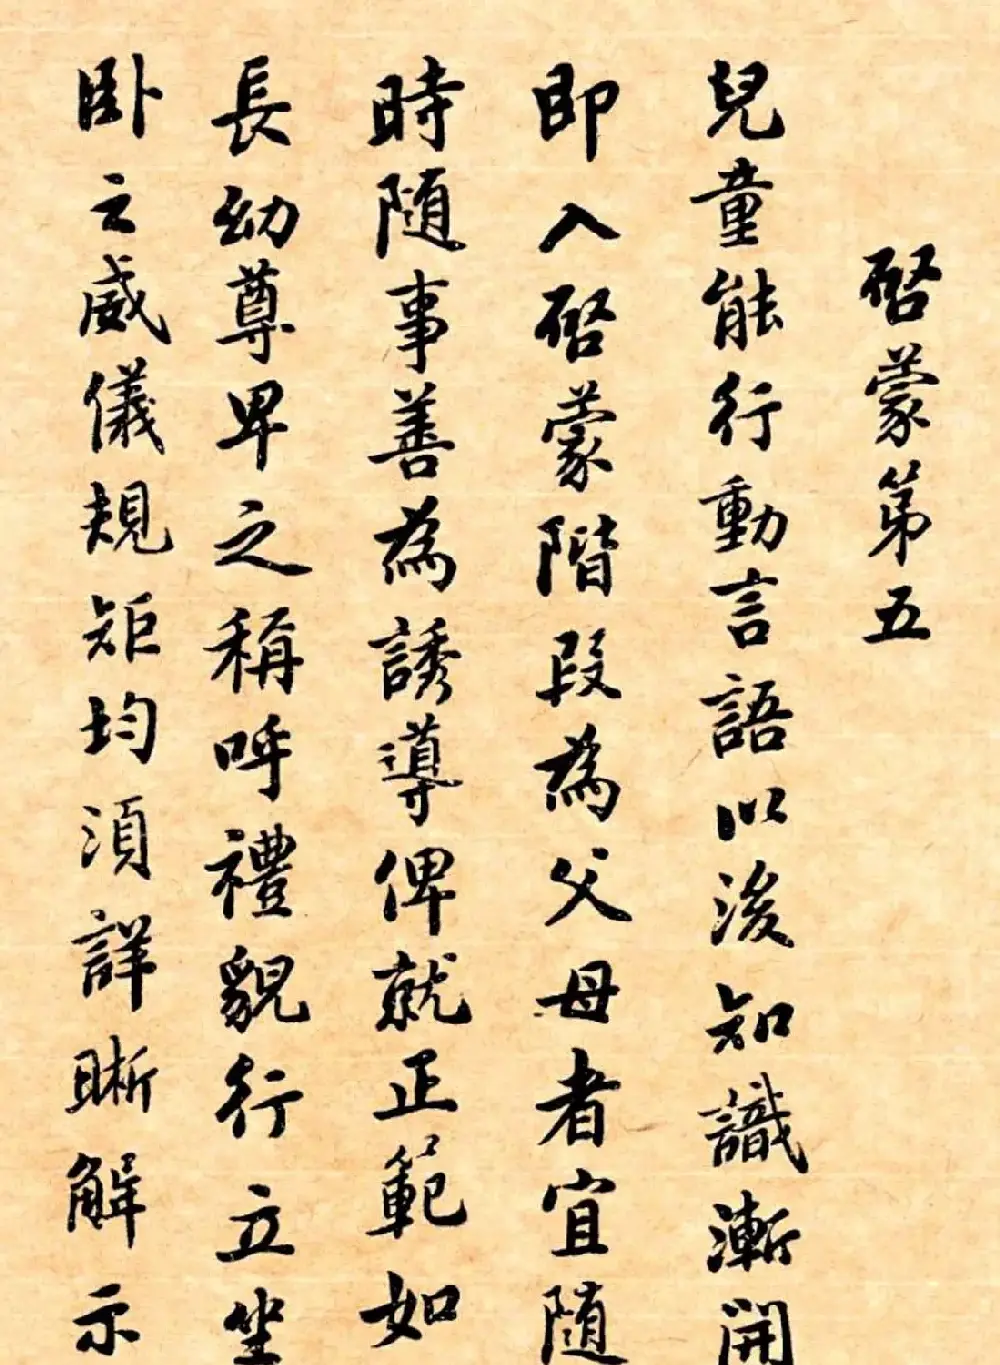 啓蒙第五
兒童能行動言語以後知識漸開
即入啓蒙階段為父母者宜隨
時隨事善為誘導俾就正範如
長幼尊卑之稱呼禮貌行立坐
卧之威儀規矩均須詳晰解示